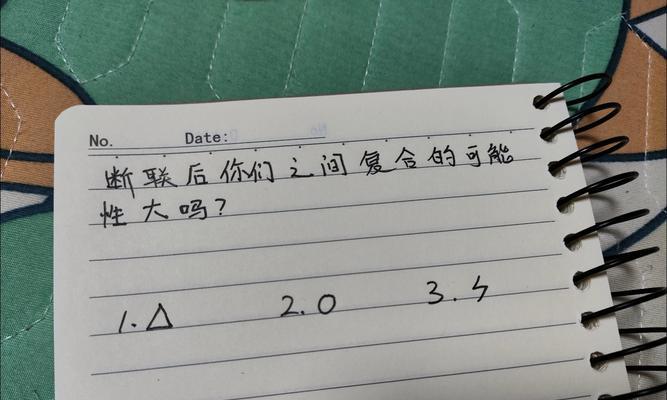 No. Date:
断联后你们之间复合的可能
性大吗?
1.△ 2.O 3.ㄣ